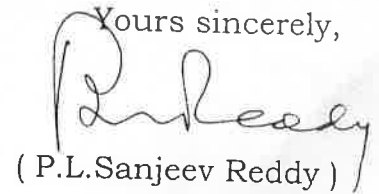 Yours sincerely,
( P.L.Sanjeev Reddy )